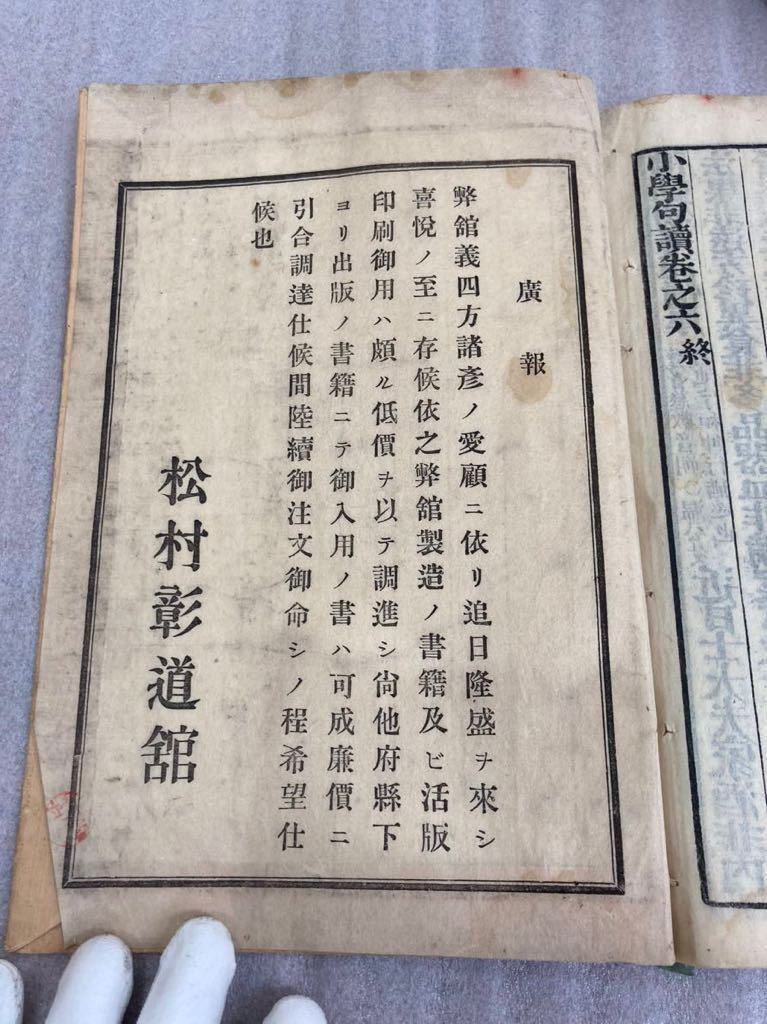 小學句讀卷之六終
廣報
弊舘義四方諸彥ノ愛顧ニ依リ追日隆盛ヲ來シ
喜悅ノ至ニ存候依之弊舘製造ノ書籍及ビ活版
印刷御用ハ頗ル低價ヲ以テ調進シ尙他府縣下
ヨリ出版ノ書籍ニテ御入用ノ書ハ可成廉價ニ
引合調達仕候間陸續御注文御命シノ程希望仕
候也
松村彰道舘